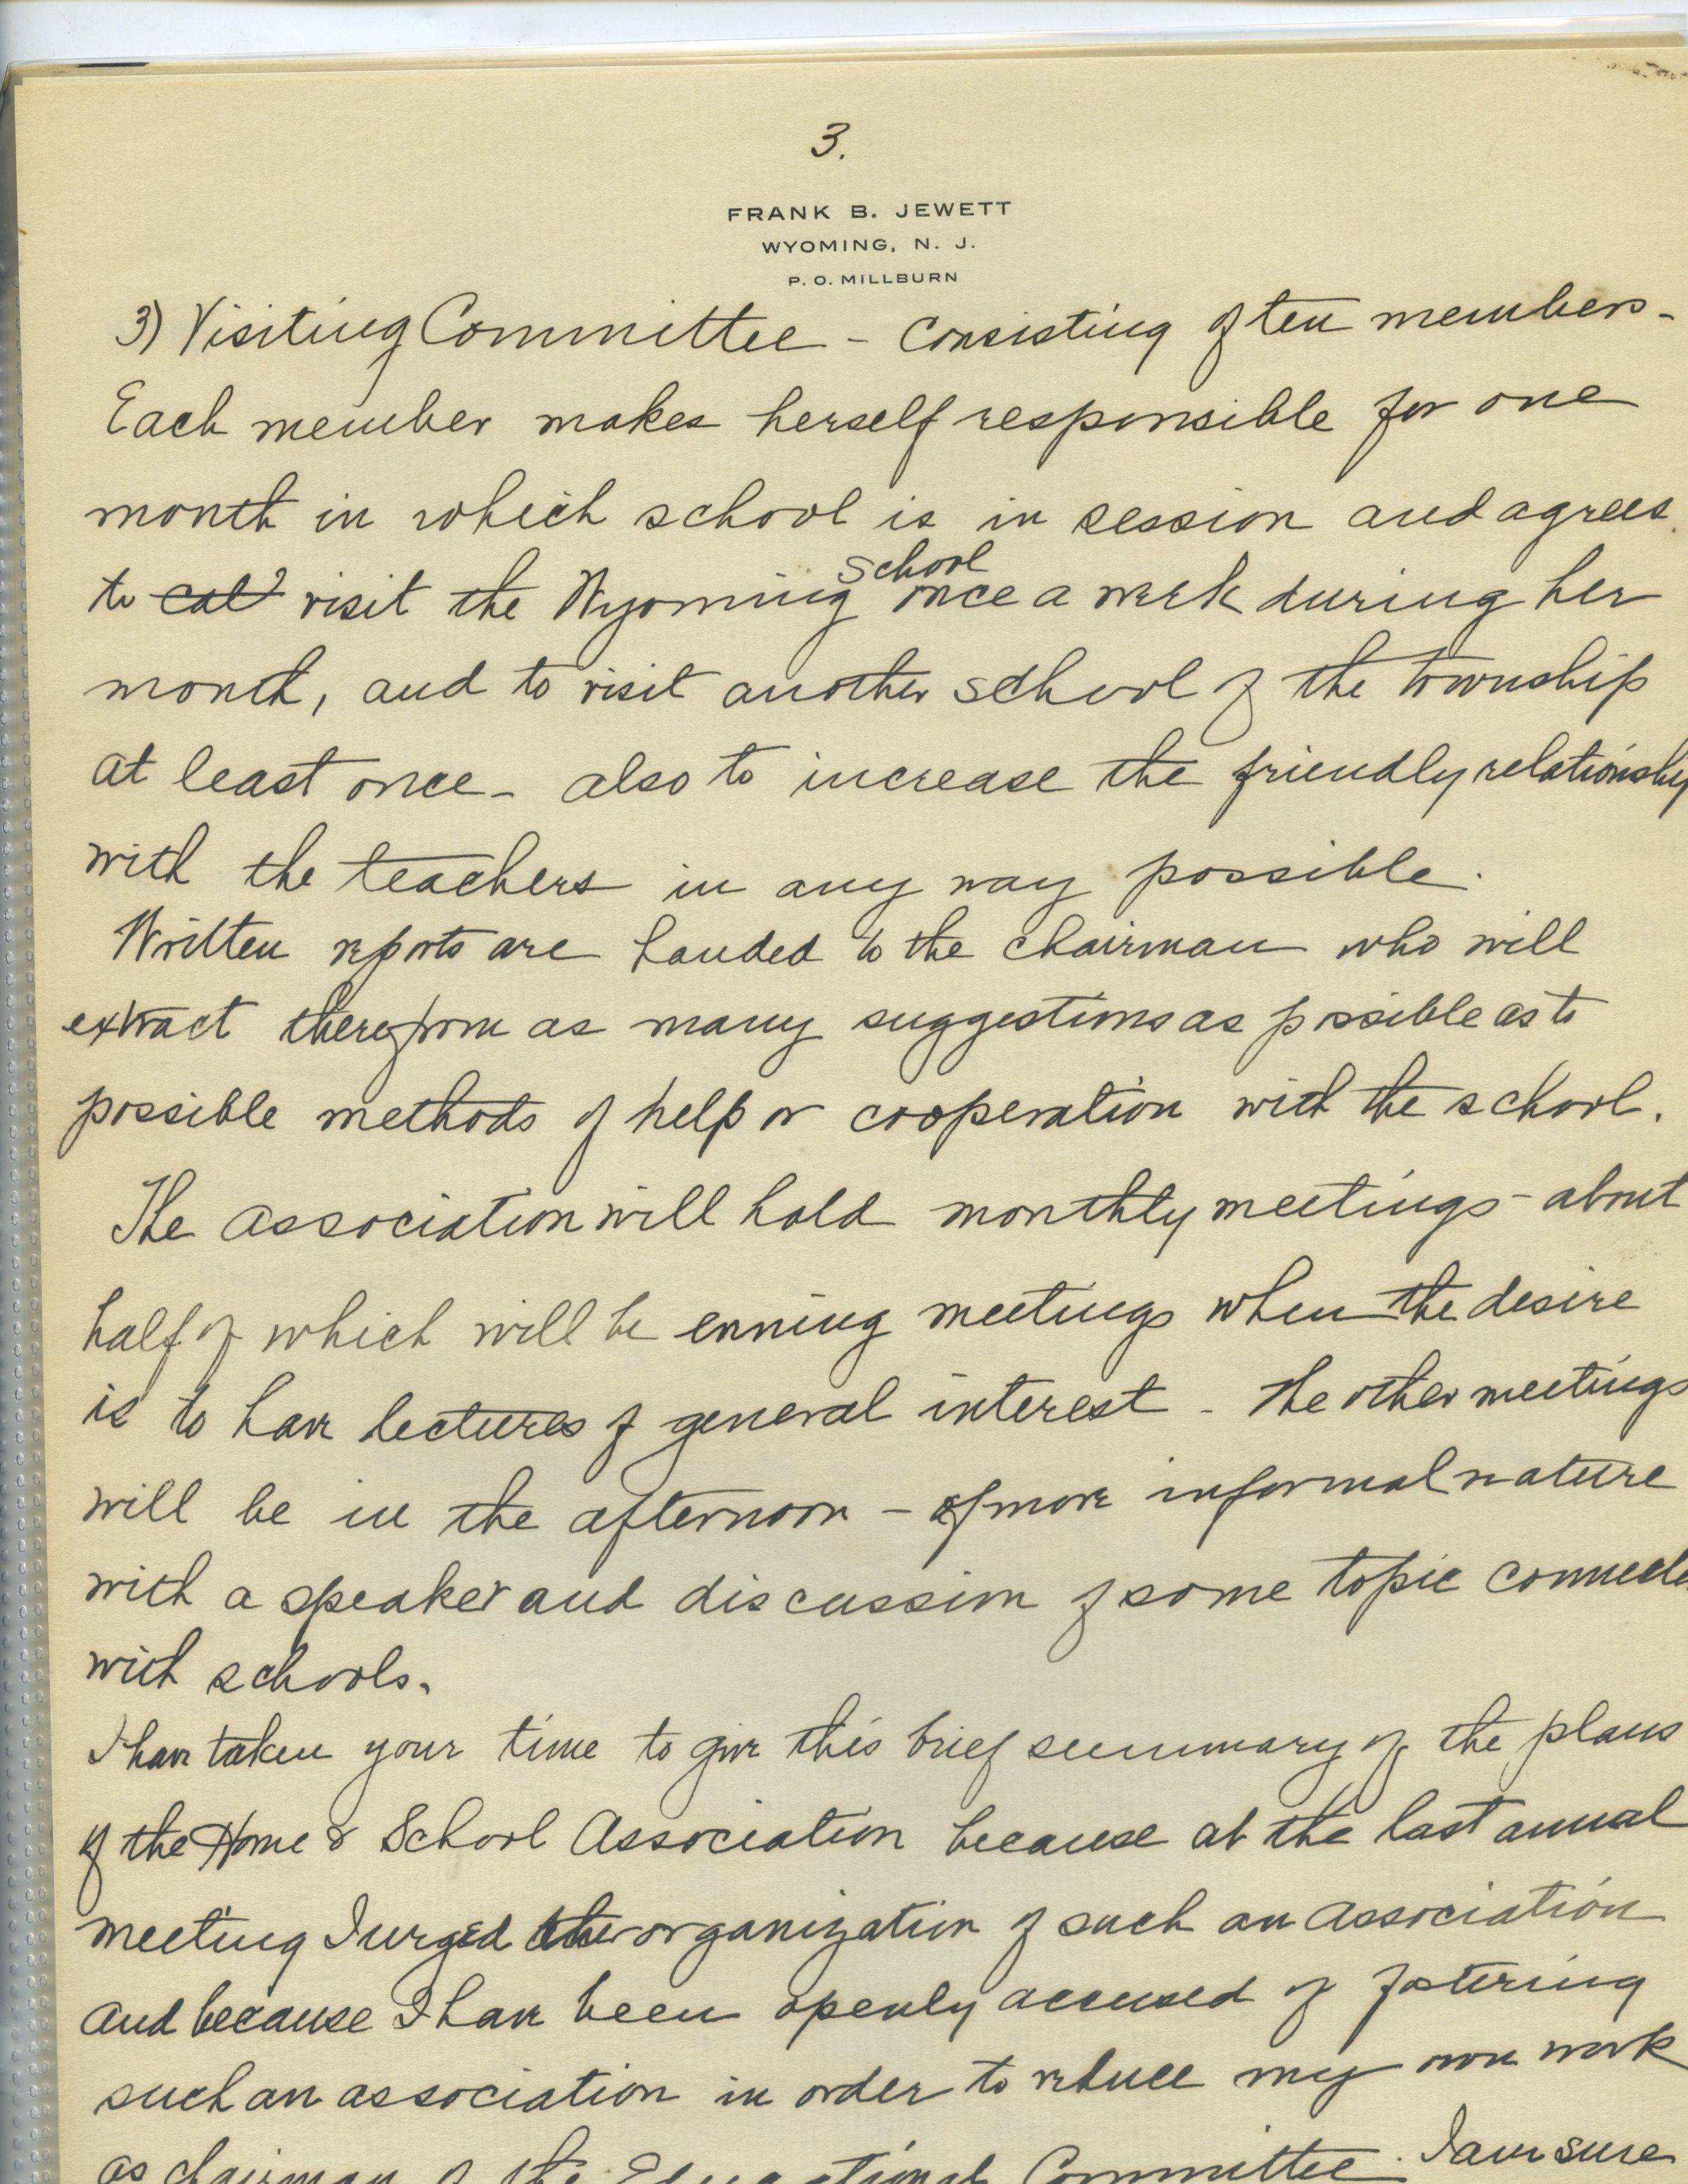 3.
FRANK B. JEWETT
WYOMING, N. J.
P. O. MILLBURN
3) Visiting Committee - consisting of ten members -
Each member makes herself responsible for one
month in which school is in session and agrees
to cal visit the Wyoming school once a week during her
month, and to visit another school of the township
at least once - also to increase the friendly relationship
with the teachers in any way possible.
Written reports are handed to the chairman who will
extract therefrom as many suggestions as possible as to
possible methods of help or cooperation with the school.
The association will hold monthly meetings - about
half of which will be evening meetings when the desire
is to have lectures of general interest - the other meetings
will be in the afternoon - of more informal nature
with a speaker and discussion of some topic connecte
with schools.
I have taken your time to give this brief summary of the plans
of the Home & School Association because at the last annual
meeting I urged the organization of such an association
and because I have been openly accused of fostering
such an association in order to reduce my own work
as chairman of the Educational Committee. I am sure